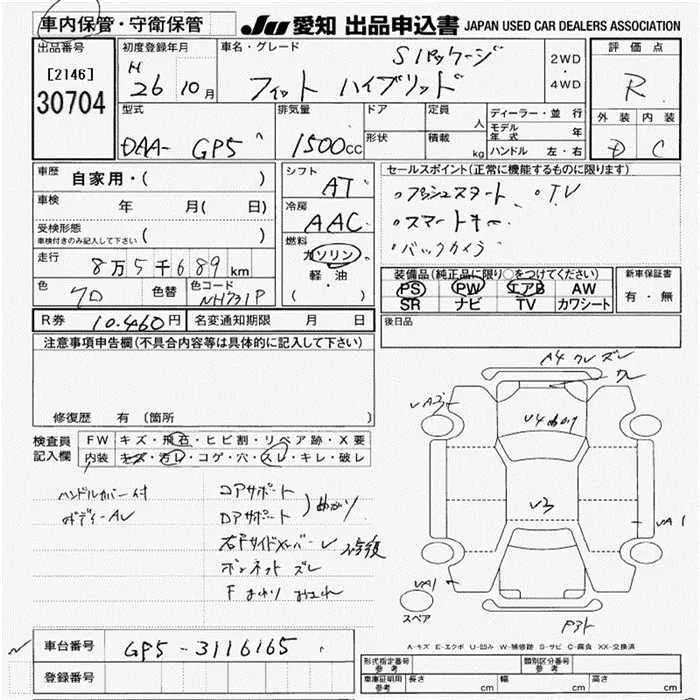 車内保管・守衛保管
JU 愛知 出品申込書 JAPAN USED CAR DEALERS ASSOCIATION
出品番号
[2146]
30704
初度登録年月
H 26 10月
車名・グレード
Sパッケージ
フィット ハイブリッド
2WD
・
4WD
評価点
R
外装 内装
D C
型式
DAA- GP5
排気量
1500cc
ドア
形状
定員 人
積載 kg
ディーラー・並行
モデル年式 年
ハンドル 左・右
車歴 自家用・( )
車検 年 月( 日)
受検形態
車検付きのみ記入して下さい ( )
走行 8万5千689km
色 クロ 色替 色コード NH731P
シフト AT
冷房 AAC
燃料 ガソリン・
軽・油
( )
セールスポイント(正常に機能するものに限ります)
・プッシュスタート ・TV
・スマートキー
・バックカメラ
装備品(純正品に限り○をつけてください)
PS PW エアB AW
SR ナビ TV カワシート
新車保証書
有・無
R券 10.460円 名変通知期限 月 日
後日品
注意事項申告欄(不具合内容等は具体的に記入して下さい)
修復歴 有 (箇所 )
検査員記入欄
FW キズ・飛石・ヒビ割・リペア跡・X要
内装 キズ・汚レ・コゲ・穴・スレ・キレ・破レ
ハンドルカバー付
ボディーAU
コアサポート
ロアサポート
右Fサイドメンバー
ボンネット ズレ
A4 ワレ ズレ
ワレ
VA3
V3
VA1
VA1
スペア
A-キズ E-エクボ U-凹み W-補修跡 S-サビ C-腐食 XX-交換済
車台番号 GP5-3116165
登録番号
形式指定番号
参考
類別区分番号
参考
車庫証明用
参考
長さ cm 幅 cm 高さ cm